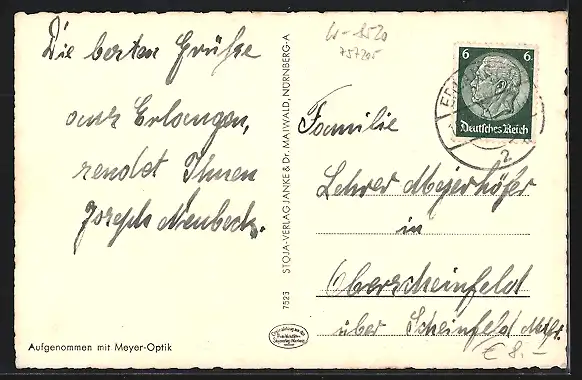 Die besten Grüße
aus Erlangen,
sendet Ihnen
Joseph Neubeck.
Aufgenommen mit Meyer-Optik
7523 STOJA-VERLAG JANKE & Dr. MAIWALD, NÜRNBERG-A
W-8520
757205
6 6
Deutsches Reich
2
Familie
Lehrer Meyerhöfer
in
Oberscheinfeld
über Scheinfeld Mfr.
€ 8.-